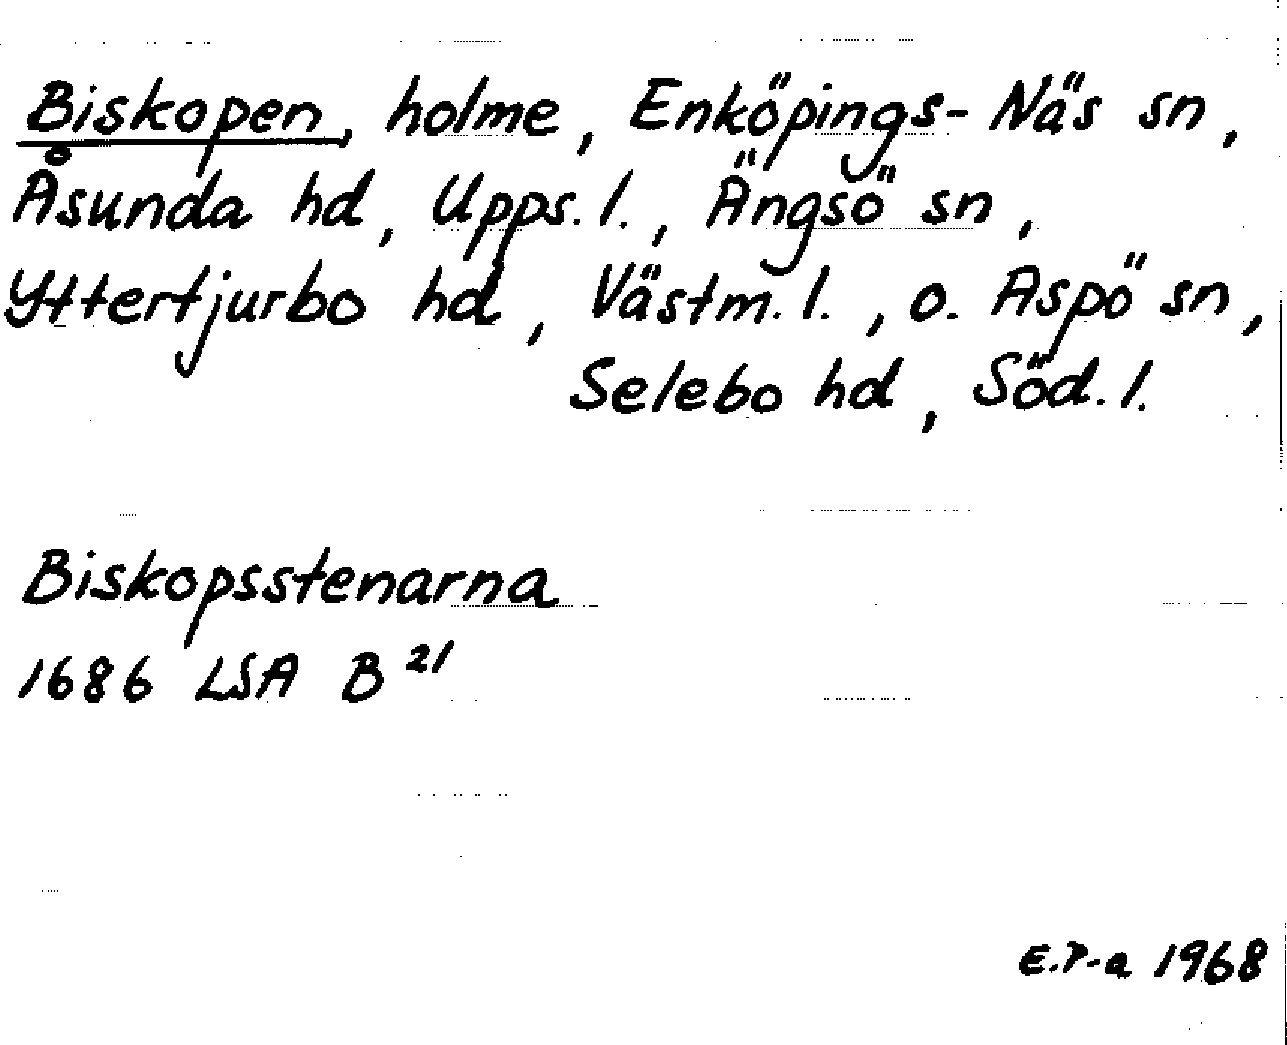 Biskopen, holme, Enköpings-Näs sn,
Åsunda hd, Upps. l., Ängsö sn,
Yttertjurbo hd, Västm. l., o. Aspö sn,
Selebo hd, Söd. l.
Biskopsstenarna
1686 LSA B 21
E.P-a 1968